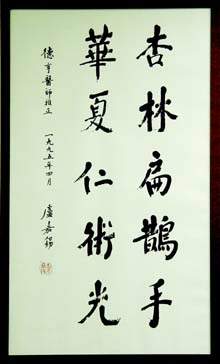 杏林扁鵲手
華夏仁術光
德亨醫師指正 一九九五年四月
盧嘉錫